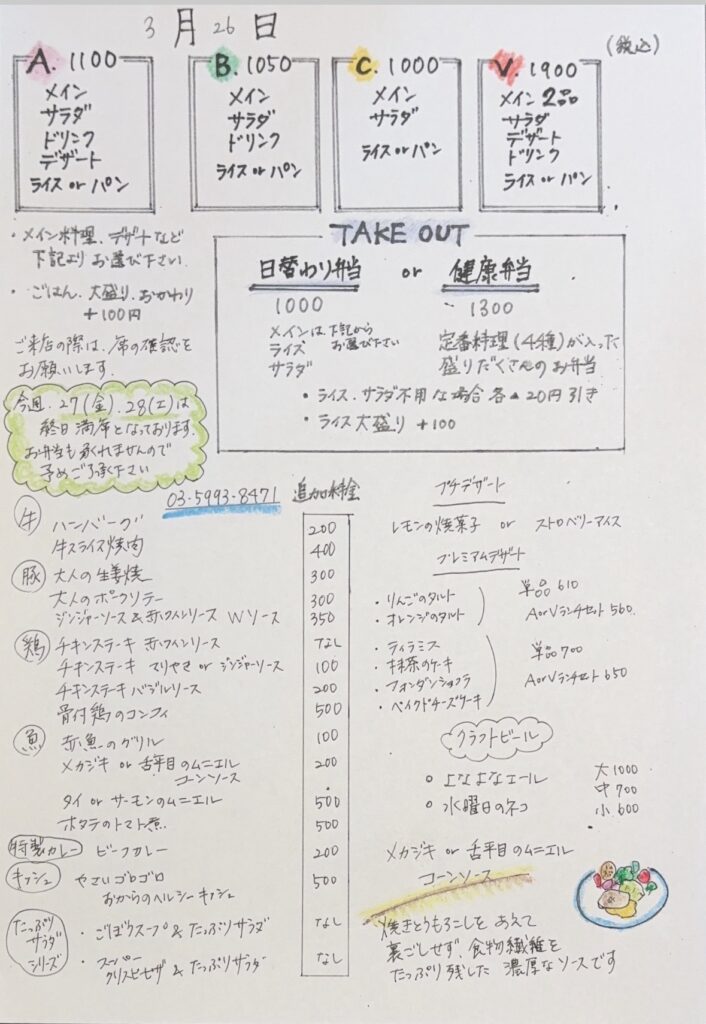 3月26日
(税込)
A. 1100
メイン
サラダ
ドリンク
デザート
ライス or パン
B. 1050
メイン
サラダ
ドリンク
ライス or パン
C. 1000
メイン
サラダ
ライス or パン
V. 1900
メイン 2品
サラダ
デザート
ドリンク
ライス or パン
・メイン料理、デザートなど
下記より お選び下さい
・ごはん、大盛り、おかわり
+100円
ご来店の際は、席の確認を
お願いします.
今週. 27(金). 28(土)は
終日満席となっております.
お弁当も承れませんので
予めご了承下さい
TAKE OUT
日替わり弁当 or 健康弁当
1000
メインは、下記から
お選び下さい
ライス
サラダ
1300
定番料理(4種)が入った
盛りだくさんのお弁当
・ライス、サラダ不用な場合 各▲20円引き
・ライス大盛り +100
03-5993-8471
追加料金
牛 ハンバーグ 200
牛スライス焼肉 400
豚 大人の生姜焼 300
大人のポークソテー 300
ジンジャーソース&赤ワインソース Wソース 350
鶏 チキンステーキ 赤ワインソース なし
チキンステーキ てりやき or ジンジャーソース 100
チキンステーキ バジルソース 200
骨付鶏のコンフィ 500
魚 赤魚のグリル 100
メカジキ or 舌平目のムニエル 200
コーンソース
タイ or サーモンのムニエル 500
ホタテのトマト煮 500
特製カレー ビーフカレー 200
キッシュ やさいゴロゴロ 500
おからのヘルシーキッシュ
たっぷり
サラダ
シリーズ
・ごぼうスープ & たっぷりサラダ なし
・スーパー
クリスピーピザ & たっぷりサラダ なし
プチデザート
レモンの焼菓子 or ストロベリーアイス
プレミアムデザート
・りんごのタルト
・オレンジのタルト
単品 610
AorVランチセット 560
・ティラミス
・抹茶のケーキ
・フォンダンショコラ
・ベイクドチーズケーキ
単品 700
AorVランチセット 650
クラフトビール
○よなよなエール
○水曜日のネコ
大 1000
中 700
小 600
メカジキ or 舌平目のムニエル
コーンソース
・焼きとうもろこしを あえて
裏ごしせず、食物繊維を
たっぷり残した 濃厚なソースです